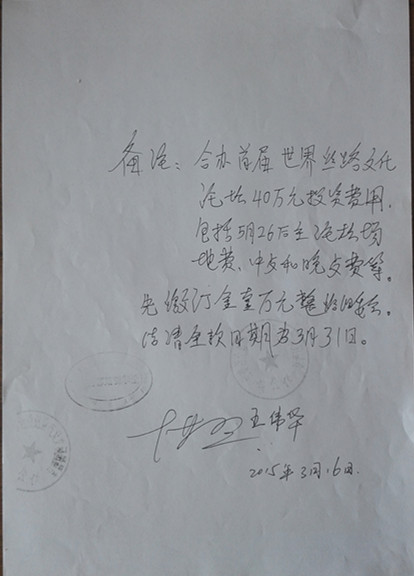 备注：合办首届世界丝路文化
论坛40万元投资费用.
包括5月26日主论坛场
地费、中支和晚支费等。
先缴订金壹万元整给组委会.
结清全款日期为3月31日。
王伟华
2015年3月16日.